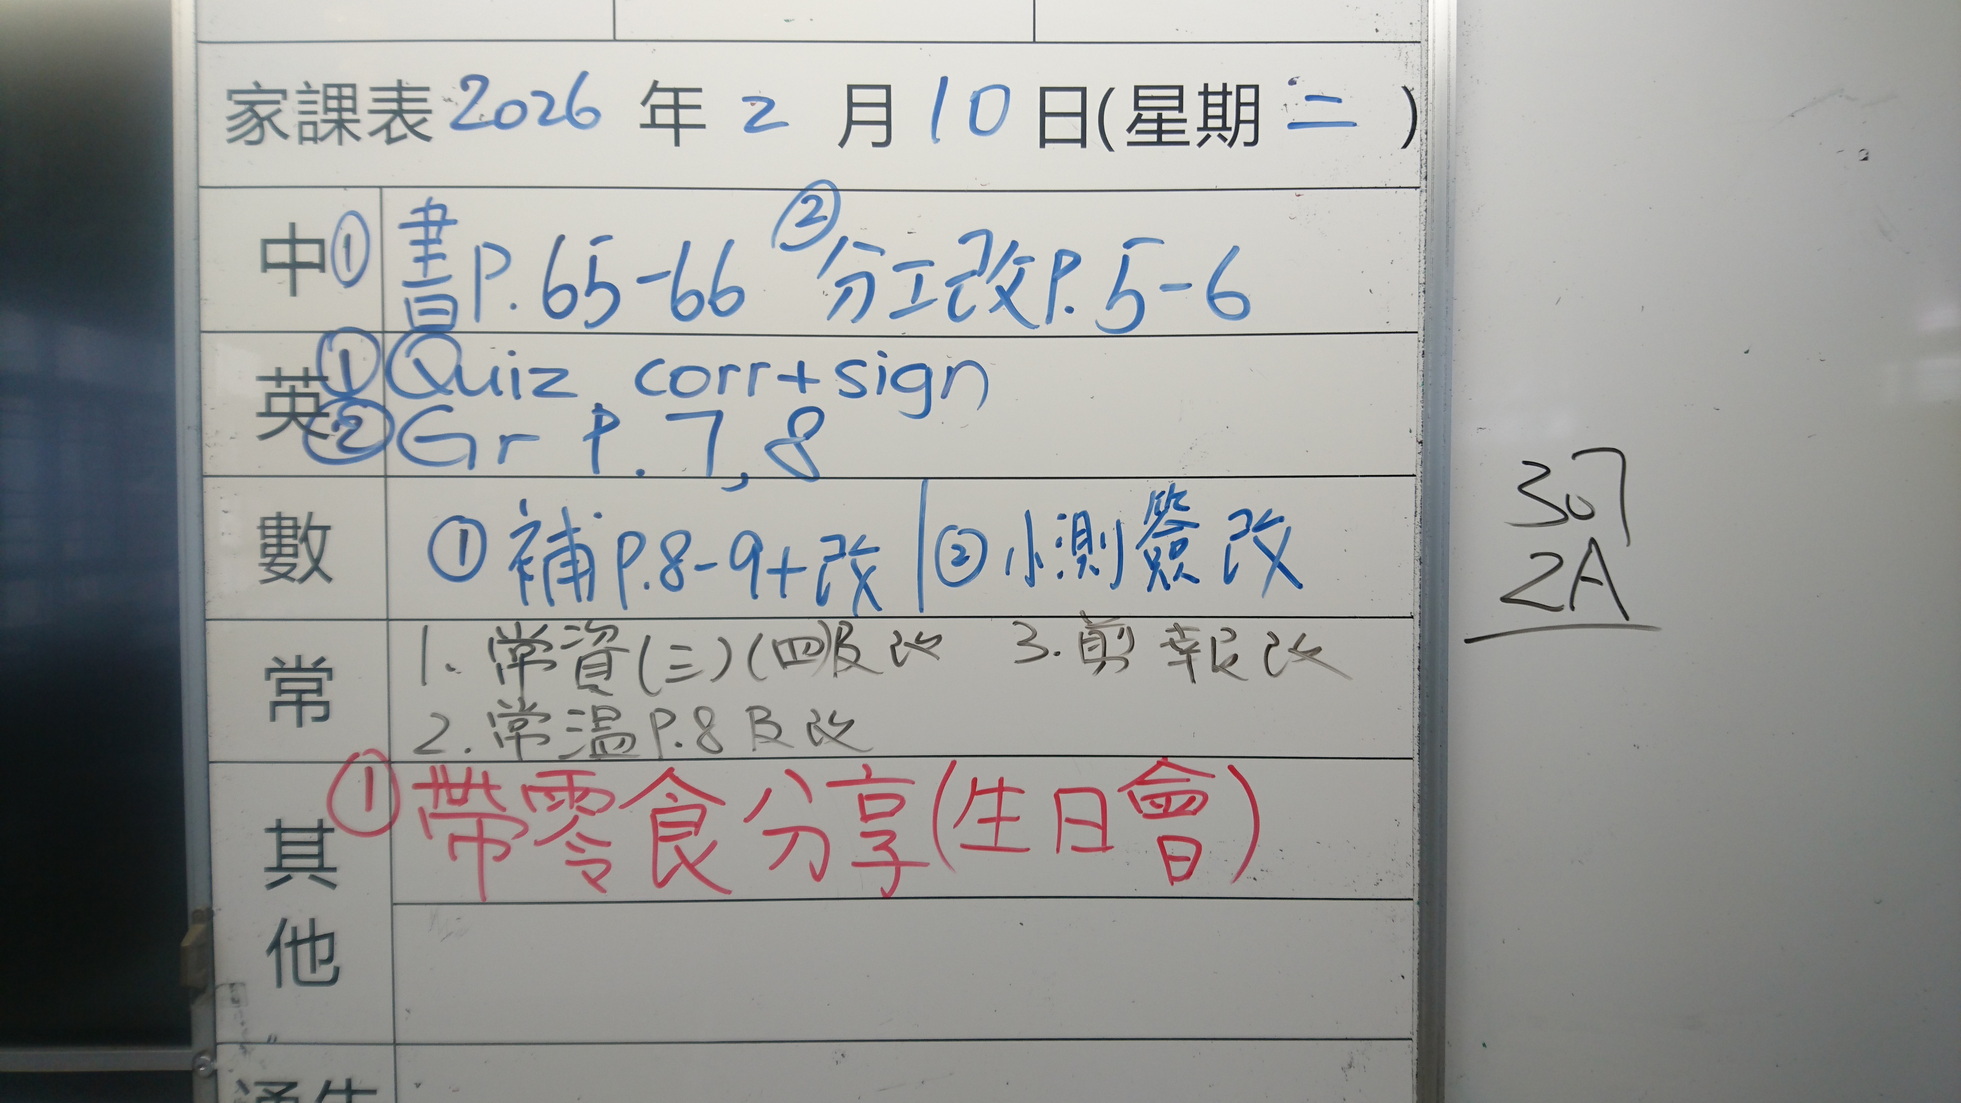 家課表 2026 年 2 月 10 日(星期 二 )
中 ① 書P.65-66 ② 分工改P.5-6
英 ① Quiz corr+sign
② Gr P.7,8
數 ① 補P.8-9+改 | ② 小測簽改
常 1. 常資(三)(四)及改 3. 剪報改
2. 常温P.8及改
其他 ① 帶零食分享(生日會)
307
2A